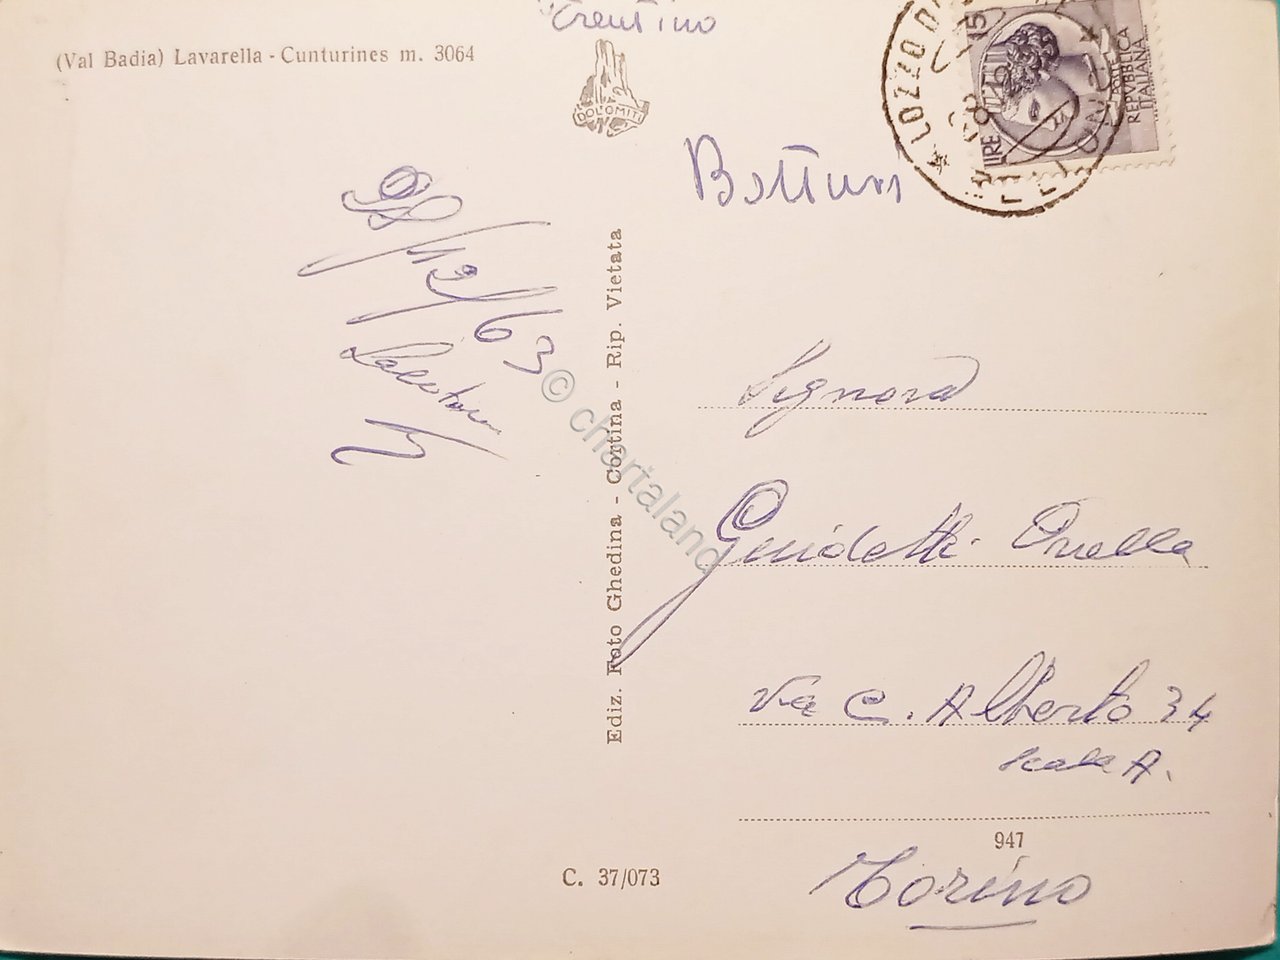 Trentino
(Val Badia) Lavarella - Cunturines m. 3064
DOLOMITI
LOZZO
LIRE
POSTE
REPVBBLICA
ITALIANA
Botturi
/12/63
Ediz. Foto Ghedina - Cortina - Rip. Vietata
© chartaland
Signora
Guidetti Ornella
Via C. Alberto 34
scala A.
947
Torino
C. 37/073